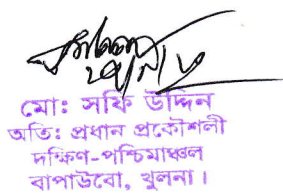 মো: সফি উদ্দিন
অতি: প্রধান প্রকৌশলী
দক্ষিণ-পশ্চিমাঞ্চল
বাপাউবো, খুলনা।